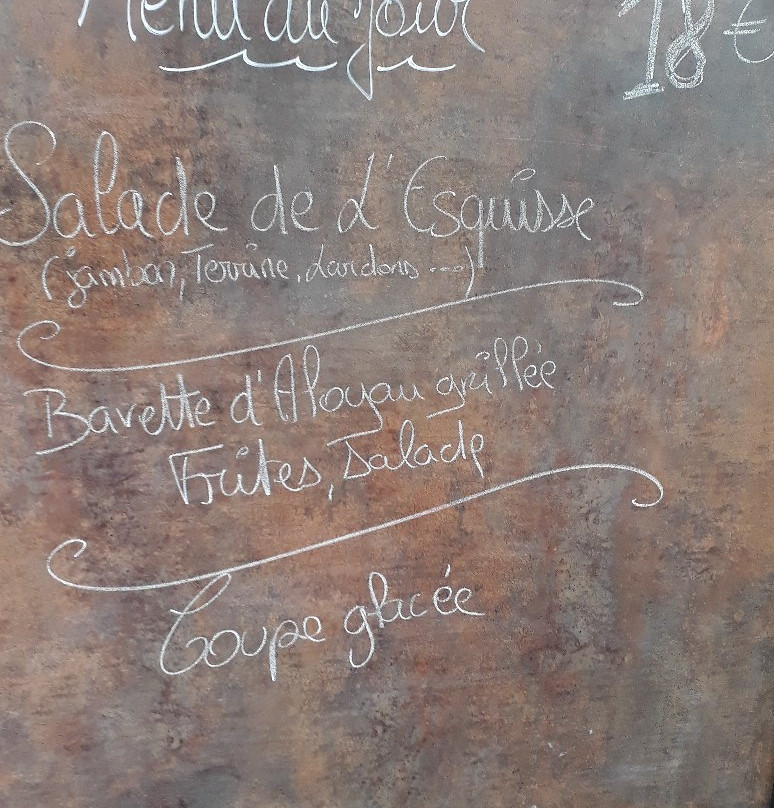 Menu du jour 18€
Salade de L'Esquisse
(jambon, Terrine, Lardons ...)
Bavette d'Aloyau grillée
Frites, Salade
Coupe glacée